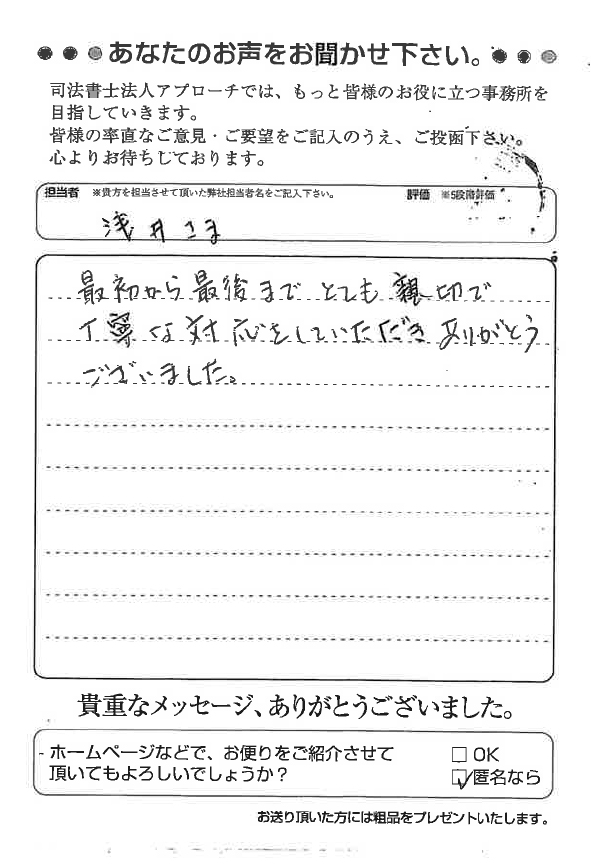 あなたのお声をお聞かせ下さい。
司法書士法人アプローチでは、もっと皆様のお役に立つ事務所を
目指していきます。
皆様の率直なご意見・ご要望をご記入のうえ、ご投函下さい。
心よりお待ちしております。
担当者 ※貴方を担当させて頂いた弊社担当者名をご記入下さい。 評価 ※5段階評価
浅井さま
最初から最後まで とても 親切で
丁寧な対応をしていただき ありがとう
ございました。
貴重なメッセージ、ありがとうございました。
ホームページなどで、お便りをご紹介させて
頂いてもよろしいでしょうか？
□ OK
☑ 匿名なら
お送り頂いた方には粗品をプレゼントいたします。